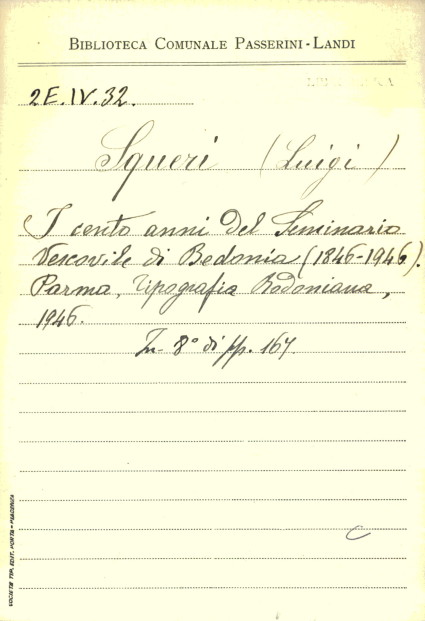 BIBLIOTECA COMUNALE PASSERINI-LANDI
2E.IV.32.
Squeri (Luigi)
I cento anni del Seminario
Vescovile di Bedonia (1846-1946).
Parma, Tipografia Bodoniana,
1946.
In 8° di pp. 167.
C